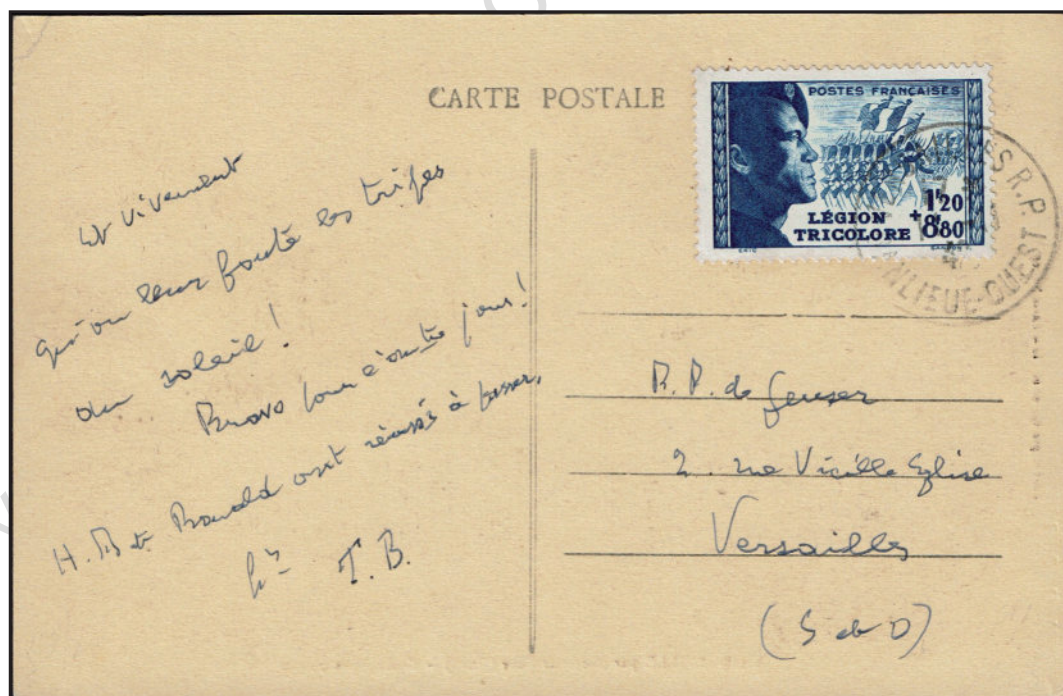 CARTE POSTALE
POSTES FRANÇAISES
LÉGION
TRICOLORE
1f20
+8f80
R.P.
BANLIEUE-OUEST
Et vivement
qu'on leur foute les tripes
au soleil!
Bravo pour l'autre jour!
H. B et Bonald ont réussi à passer.
T.B.
R.P. de
2. rue Vieille Eglise
Versailles
(S et O)